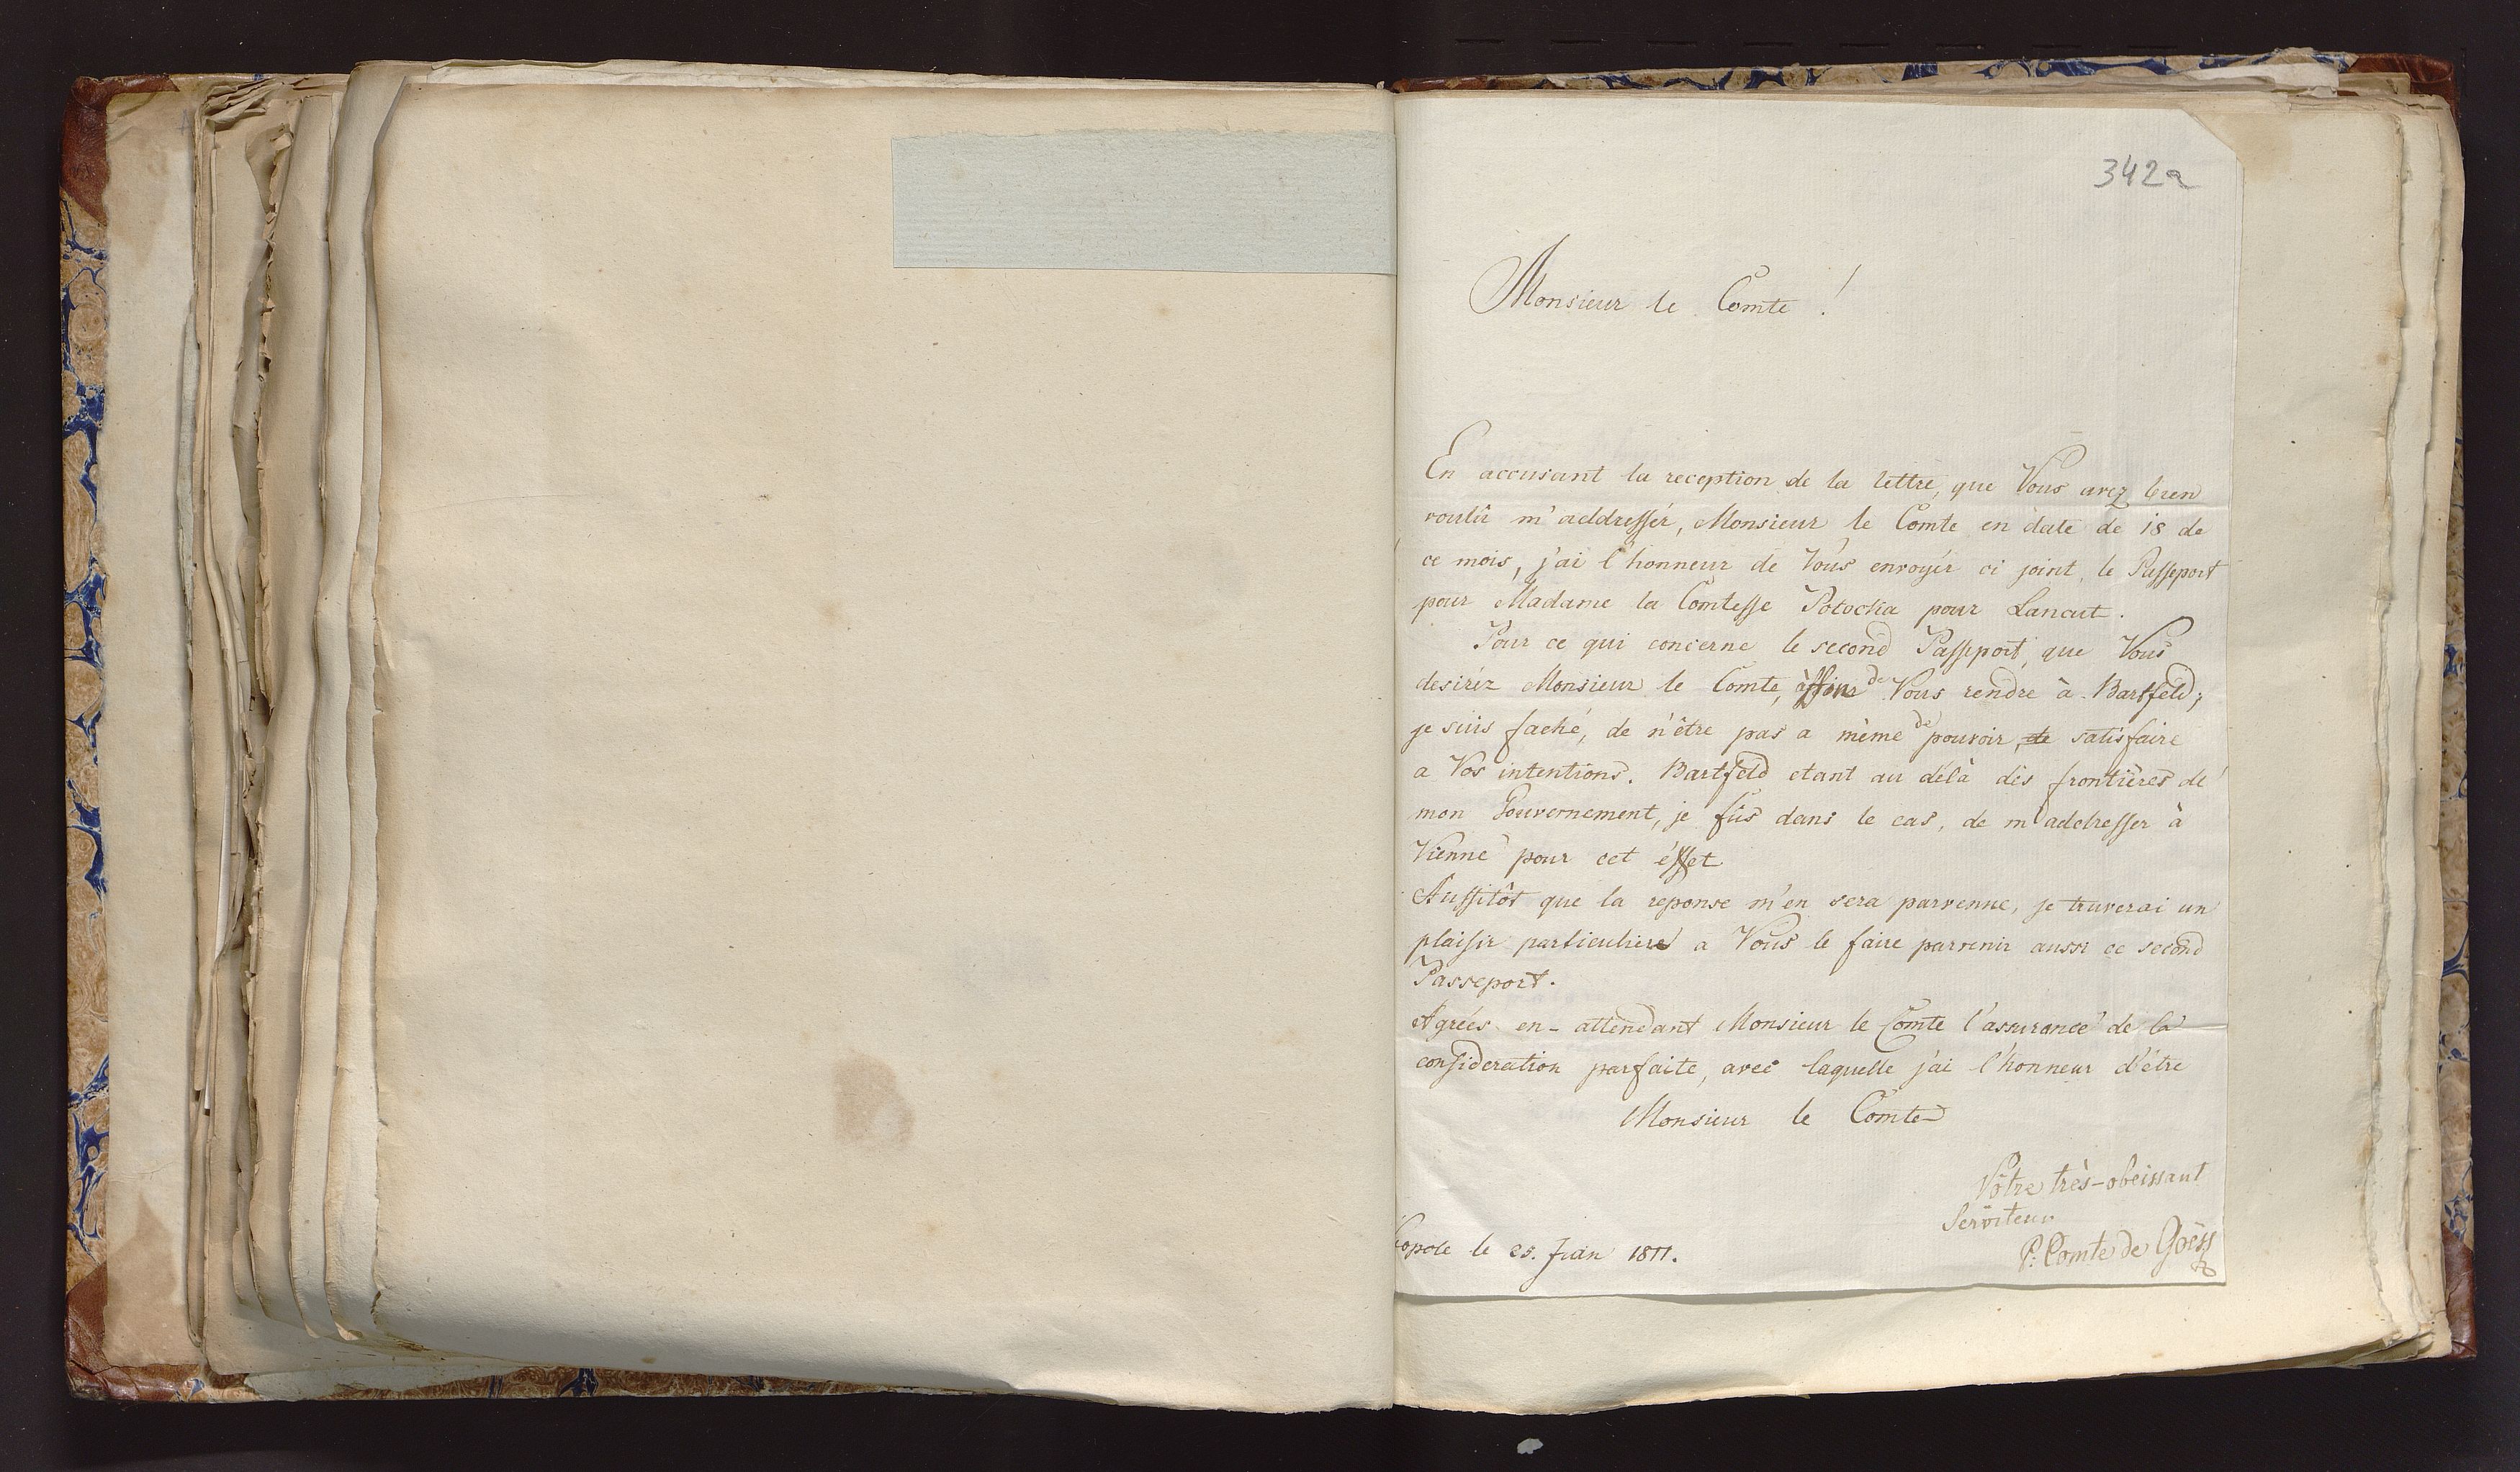 342a
Monsieur le Comte !
En accusant la reception de la lettre, que Vous avez bien
voulû m'addressér, Monsieur le Comte en date de 18 de
ce mois, j'ai l'honneur de Vous envoyér ci joint, le Passeport
pour Madame la Comtesse Potocka pour Lancut.
Pour ce qui concerne le second Passeport, que Vous
desiréz Monsieur le Comte, àffin de Vous rendre à Bartfeld;
je suis faché, de n'être pas a même de pouvoir, de satisfaire
a Vos intentions. Bartfeld etant au délà dès frontières de
mon Gouvernement, je fûs dans le cas, de m'addresser à
Vienne pour cet éffet
Aussitôt que la reponse m'en sera parvenue, je truverai un
plaisir particulier a Vous le faire parvenir aussi ce second
Passeport.
Agrées en-attendant Monsieur le Comte l'assurance de la
consideration parfaite, avec laquelle j'ai l'honneur d'étre
Monsieur le Comte
Vôtre très-obeissant
Serviteur
P: Comte de Goëss
Leopole le 25. Juin 1811.